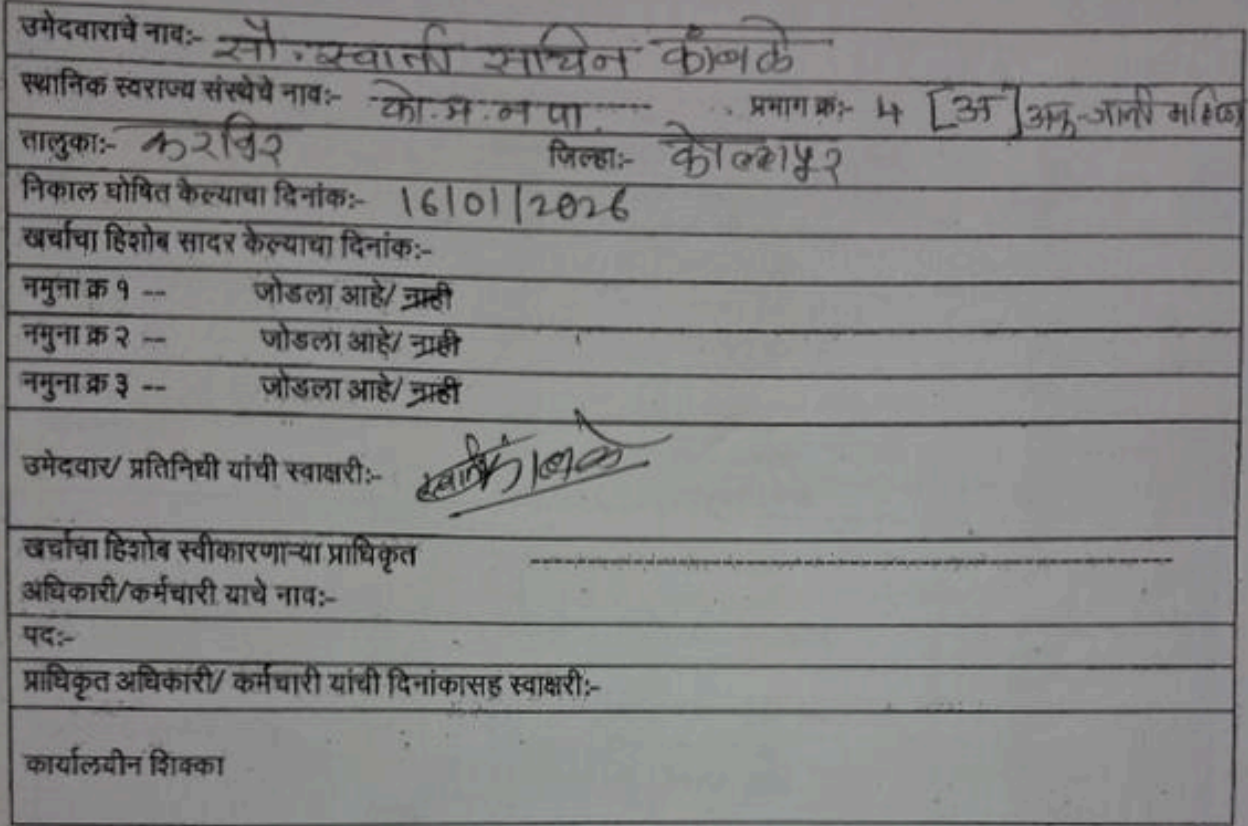 उमेदवाराचे नाव:- सौ. स्वाती सचिन कांबळे
स्थानिक स्वराज्य संस्थेचे नाव:- को.म.न.पा. प्रभाग क्र:- 4 [अ] अनु-जाती महिला
तालुका:- करविर जिल्हा:- कोल्हापूर
निकाल घोषित केल्याचा दिनांक:- 16/01/2026
खर्चाचा हिशोब सादर केल्याचा दिनांक:-
नमुना क्र १ -- जोडला आहे/ नाही
नमुना क्र २ -- जोडला आहे/ नाही
नमुना क्र ३ -- जोडला आहे/ नाही
उमेदवार/ प्रतिनिधी यांची स्वाक्षरी:- स्वाती कांबळे
खर्चाचा हिशोब स्वीकारणाऱ्या प्राधिकृत
अधिकारी/कर्मचारी याचे नाव:-
पद:-
प्राधिकृत अधिकारी/ कर्मचारी यांची दिनांकासह स्वाक्षरी:-
कार्यालयीन शिक्का